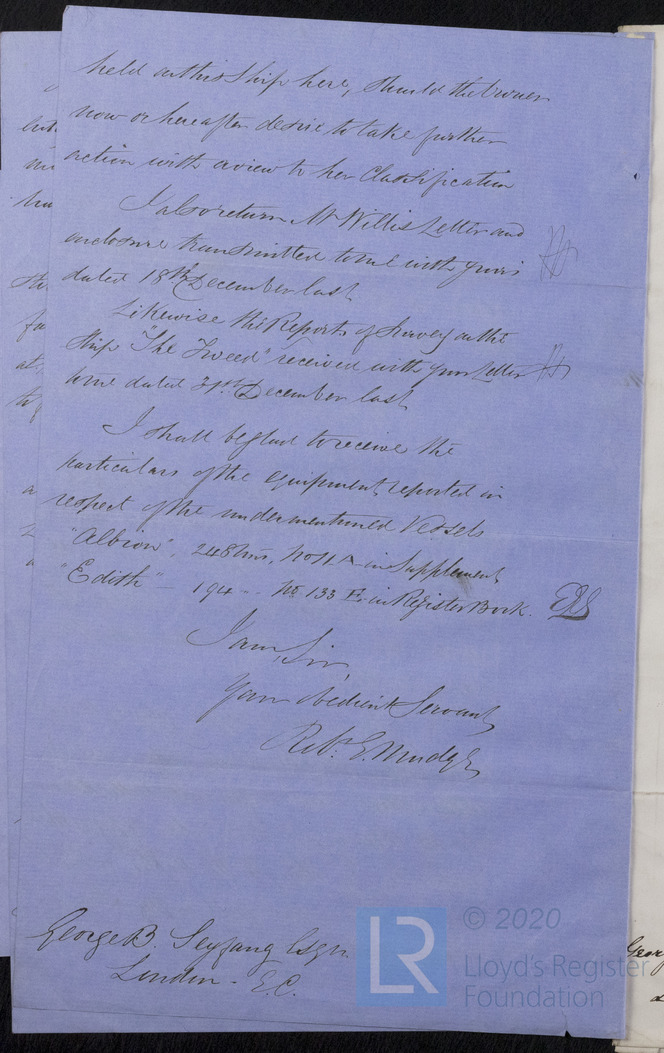 held on this Ship here, should the Owner
now or hereafter desire to take further
action with a view to her Classification
I also return Mr Willis Letter and
enclosure transmitted to me with yours
dated 18th December last
Likewise the Reports of Survey on the
Ship "The Tweed" received with your Letter
to me dated 31st December last
I shall be glad to receive the
particulars of the equipment reported in
respect of the undermentioned Vessels
"Albion", 248 tons, No 4 A in Supplement
"Edith" - 194 - - No 133 E. in Register Book.
I am, Sir,
Your obedient Servant
Robt. E. Mudge
George B. Seyfang Esqre
London - E.C.
LR
© 2020
Lloyd's Register
Foundation